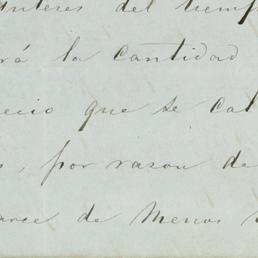 Interes del tiemp
rá la cantidad
ecio que se cal
s, por razon de
arse de menos